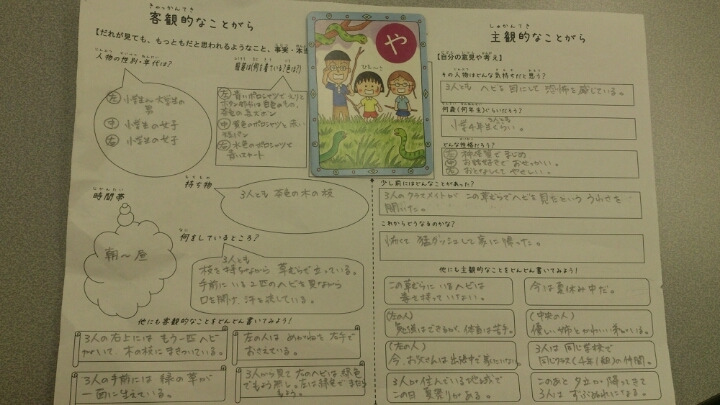 きゃっかんてき
客観的なことがら
【だれが見ても、もっともだと思われるようなこと、事実・本当
人物の性別・年代は?
小学生か大学生の
男
小学生の女子
小学生の女子
服装は(何を着ている?色は?)
持ち物
3人とも 茶色の木の枝
時間帯
朝〜昼
何をしているところ?
3人とも
枝を持ちながら 草むらで立っている。
手前にいる2匹のヘビを見ながら
口を開け、汗を流している。
他にも客観的なことをどんどん書いてみよう!
3人の右上には もう一匹ヘビ
がいて、木の枝にまきついている。
左の人は めがねを 右手で
おさえている。
3人の手前には 緑の草が
一面に生えている。
や
しゅかんてき
主観的なことがら
【自分の意見や考え】
その人物はどんな気持ちだと思う?
3人とも ヘビを目にして 恐怖を感じている。
何歳(何年生)ぐらいだろう?
小学4年生くらい。
どんな性格だろう?
少し前にはどんなことがあった?
3人のクラスメイトが この草むらでヘビを見たという うわさを
聞いた。
これからどうなるのかな?
怖くて 猛ダッシュして家に帰った。
他にも主観的なことをどんどん書いてみよう!
この草むらにいるヘビは
毒を持っていない。
今は夏休み中だ。
(左の人)
勉強はできるが、体育は苦手。
(中央の人)
優しい姉と
(右の人)
今、お父さんは出張中で家にいない。
3人は同じ学校で
同じクラス(4年1組)の仲間。
3人が住んでいる地域で
この日 夏祭りがある。
このあと夕立が降ってきて
3人は ずぶぬれになる。